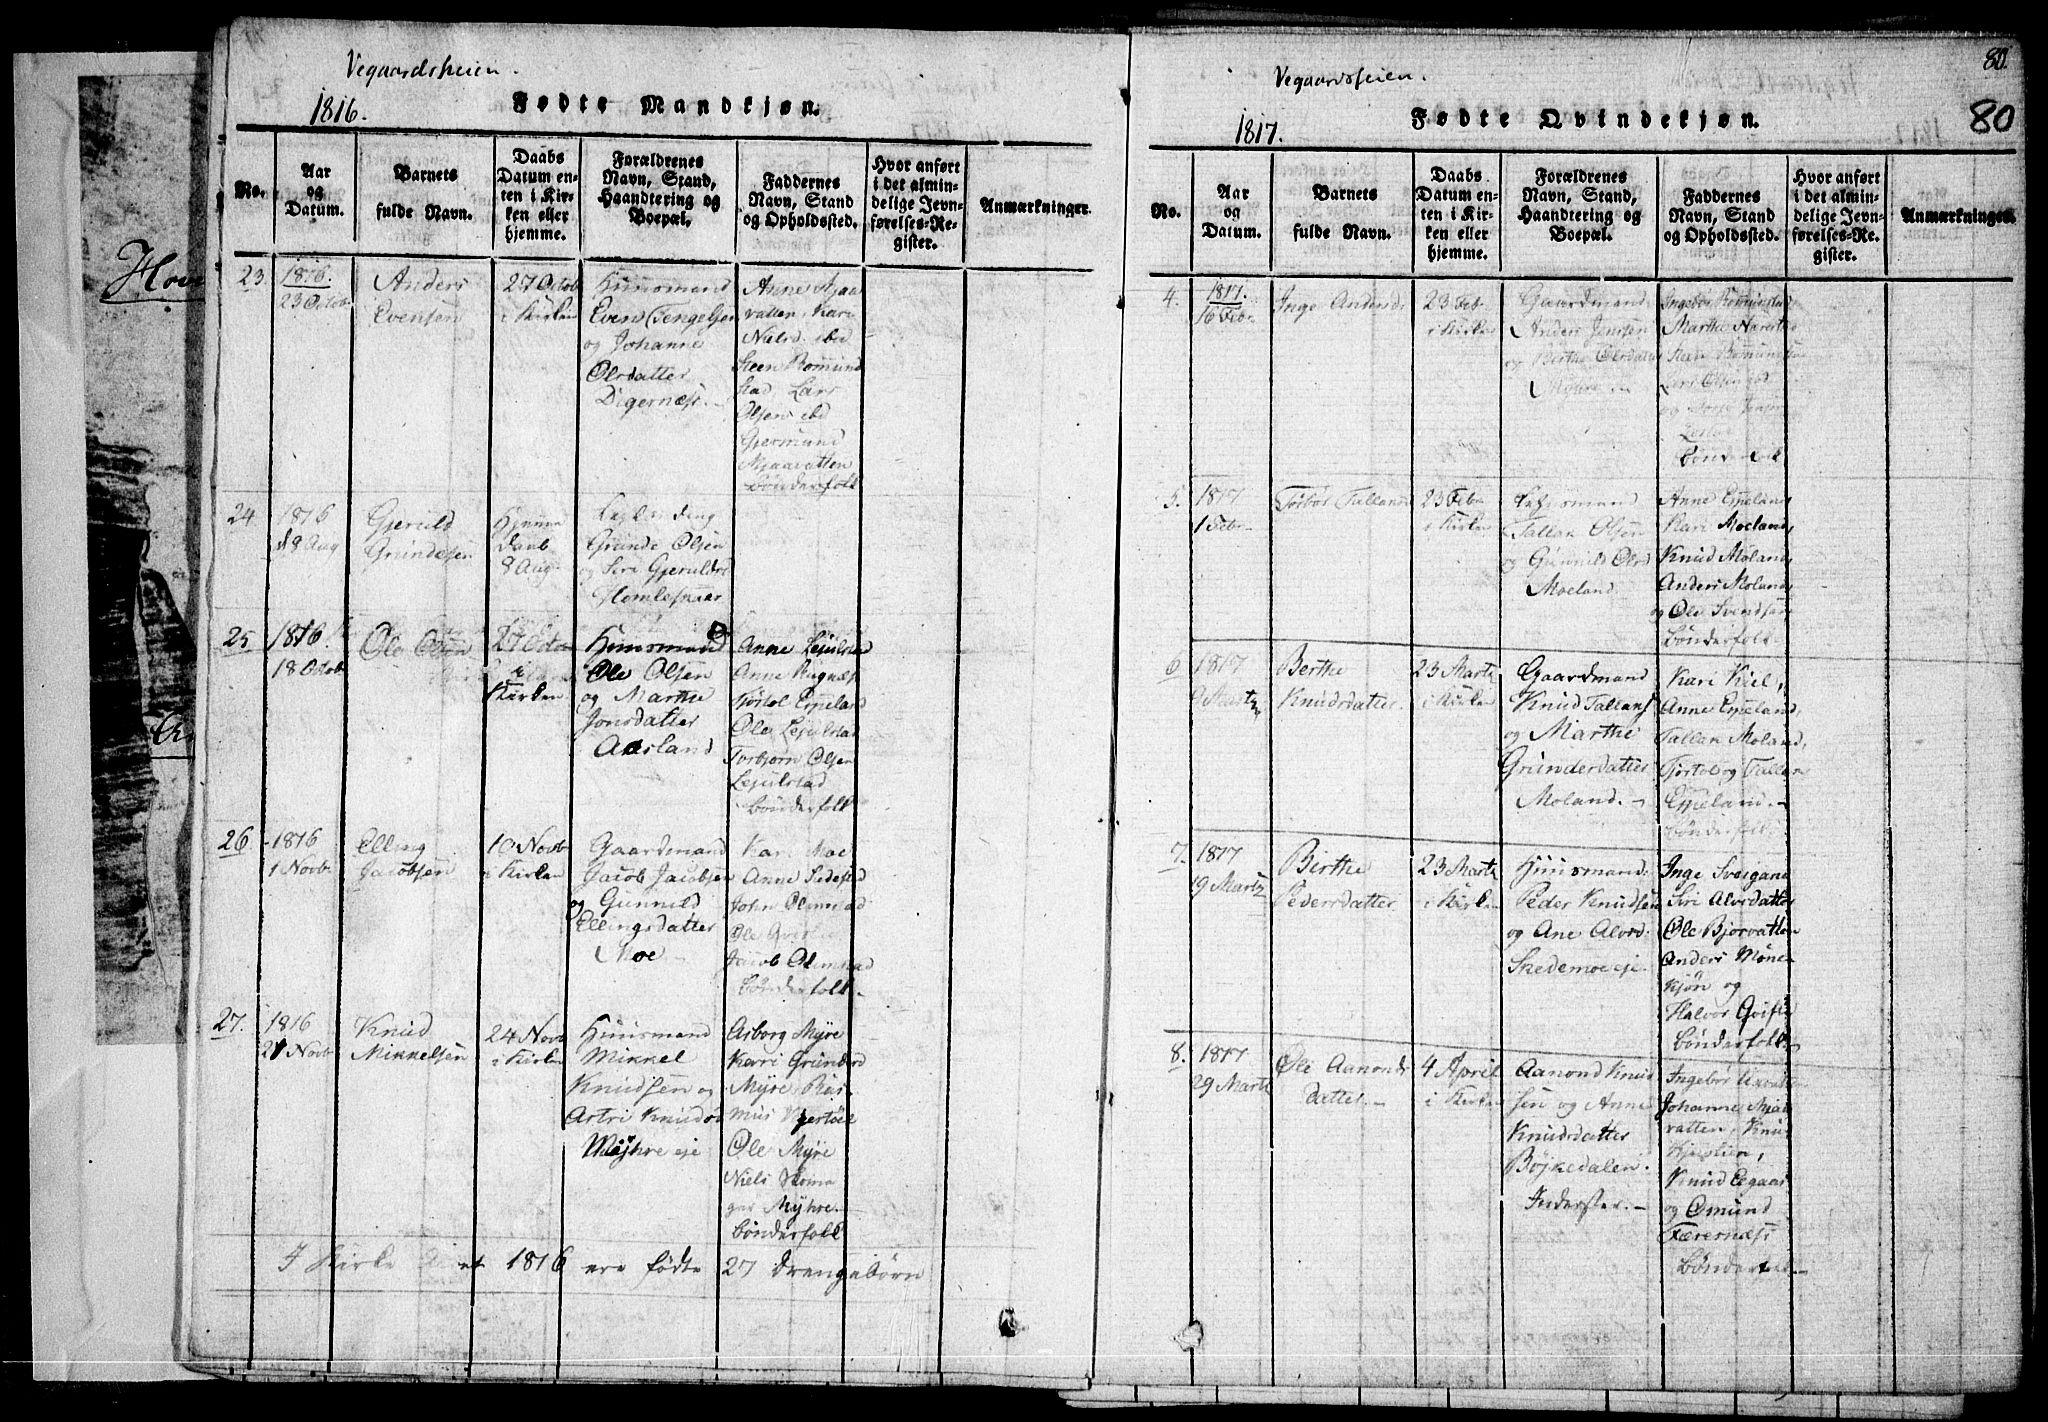 Vegaardsheien.
1816. Fødte Mandkjøn.
No.
Aar
og
Datum.
Barnets
fulde Navn.
Daabs
Datum en-
ten i Kir-
ken eller
hjemme.
Forældrenes
Navn, Stand,
Haandtering og
Boepæl.
Faddernes
Navn, Stand
og Opholdssted.
Hvor anført
i det almin-
delige Jevn-
førelses-Re-
gister.
Anmærkninger.
23.
1816.
23 Octob
Anders
Evensen
27 Octob
i Kirken
Huusmand
Even Tengelsen
og Johanne
Olsdatter
Digernæs. -
Anne Mjaa
vatten, Kari
Nielsd. ibd
Steen Romund
stad Lars
Olsen ibd
Gjermund
Mjaavatten
Bønderfolk
24
1816
d 8 Aug
Gjeruld
Grundesen
Hjemme
daab
8 Aug
Grunde Olsen
og Siri Gjerulds
25
1816
18 Octob
Ole Olsen
27 Octob
i
Kirken
Huusmand
Ole Olsen
og Marthe
Jonsdatter
Aasland
Anne Lejulstad
Anne
Tjøstol Eppeland
Ole Lejulstad
Torbjørn Olsen
Lejulstad
Bønderfolk
26
1816
1 Novb
Elling
Jacobsen
10 Novb
i Kirken
Gaardmand
Jacob Jacobsen
og Gunnild
Ellingsdatter
Moe -
Kari Moe
Anne
John Olimstad
Ole
Jacob Olimstad
Bønderfolk
27.
1816
21 Novb
Knud
Mikkelsen
24 Novb
i Kirken
Huusmand
Mikkel
Knudsen og
Astri Knudsd
Myhre eje
Asborg Myre
Kari Grunders
Myre Ras-
mus
Ole Myre
Niels
Myhre
Bønderfolk
I Kirke 1816 ere fødte 27 Drengebørn
80.
80
Vegaardsheien.
1817. Fødte Qvindekjøn.
No.
Aar
og
Datum.
Barnets
fulde Navn.
Daabs
Datum en-
ten i Kir-
ken eller
hjemme.
Forældrenes
Navn, Stand,
Haandtering og
Boepæl.
Faddernes
Navn, Stand
og Opholdssted.
Hvor anført
i det almin-
delige Jevn-
førelses-Re-
gister.
Anmærkninger.
4.
1817.
16 Febr
Inge Andersd
23 Febr
i Kirken
Gaardmand
Anders Jensen
og Berthe Olsdatter
Ingebor Romunstad
Marthe Narestad
Steen Romundstad
Lars Olsen ibd
Bønderfolk
5.
1817
1 Febr
Torbor Tallaksd
23 Febr
i Kirken
Tallak Olsen
og Gunnild Olsd
Moeland
Anne Eppeland
Kari Moeland
Knud Moland
Anders Moland
og Ole Svendsen
Bønderfolk
6
1817
9 Martz
Berthe
Knudsdatter
23 Martz
i Kirken
Gaardmand
Knud Tallaks
og Marthe
Grundersdatter
Moland. -
Kari Kiel,
Anne Eppeland,
Tallak Moland,
Tjøstol og Tallak
Eppeland. -
Bønderfolk.
7.
1817
19 Martz
Birthe
Pedersdatter
23 Martz
i Kirken
Huusmand
Peder Knudsen
og Ane Alovsd.
Skedemoe eje
Inge
Siri Alovsdatter
Ole Bjorvatten
Anders Møne-
kjøn og
Halvor
Bønderfolk
8.
1817
29 Martz
Ole Aanonds
datter. -
4 April
i Kirken
Aanond Knud
sen og Anne
Knudsdatter
Bøjkedalen
Inderster. -
Ingebor
Johanne Mjaa
vatten, Knud
Knud Egaas
og Omund
Færernæs
Bønderfolk. -